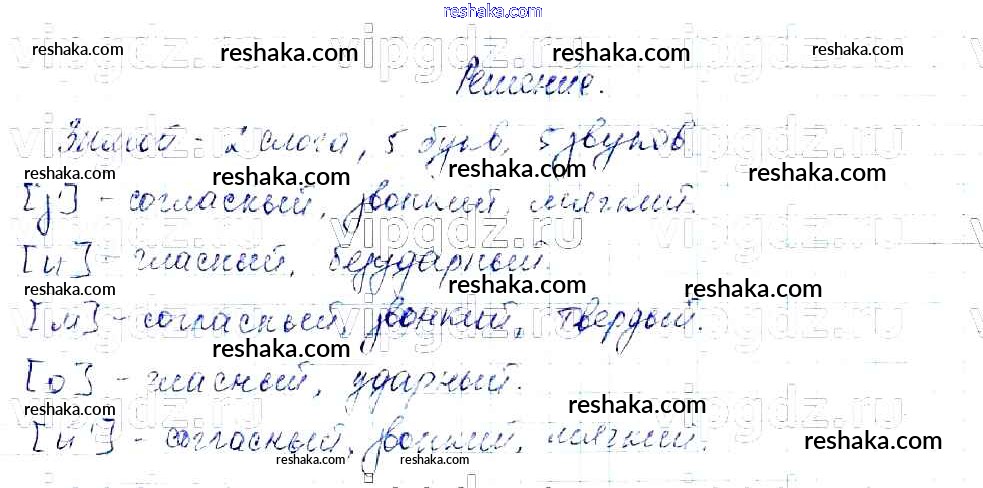 reshaka.com
reshaka.com reshaka.com reshaka.com reshaka.com
vipgdz.ru vipgdz.ru
Решение.
vipgdz.ru vipgdz.ru
Зимой - 2 слога, 5 букв, 5 звуков
reshaka.com reshaka.com reshaka.com
[j'] - согласный, звонкий, мягкий.
vipgdz.ru vipgdz.ru
[и] - гласный, безударный.
reshaka.com reshaka.com reshaka.com
[м] - согласный, звонкий, твердый.
vipgdz.ru vipgdz.ru
reshaka.com
[о] - гласный, ударный.
reshaka.com reshaka.com
vipgdz.ru vipgdz.ru
[й'] - согласный, звонкий, мягкий.
reshaka.com reshaka.com reshaka.com